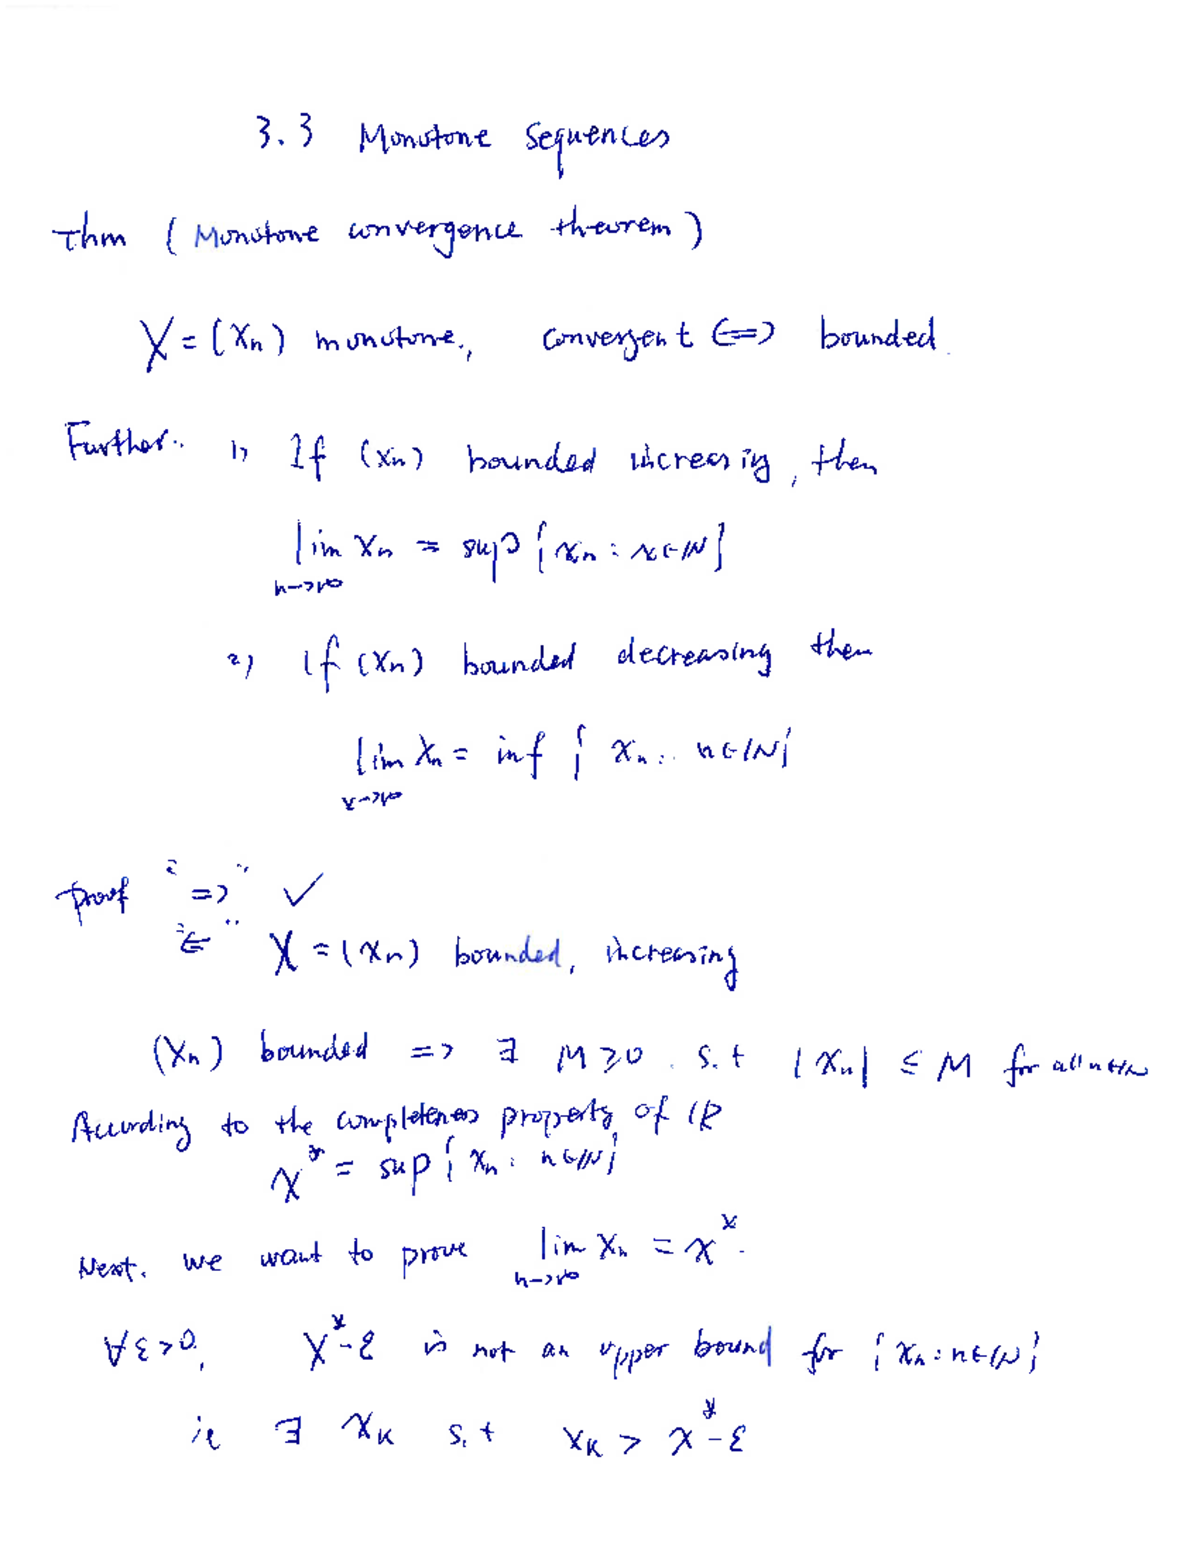 3.3 Monotone Sequences
Thm (Monotone convergence theorem)
X = (xₙ) monotone, convergent ⟺ bounded.
Further: 1) If (xₙ) bounded increasing, then
lim xₙ = sup {xₙ : n∈ℕ}
n→∞
2) If (xₙ) bounded decreasing then
lim xₙ = inf { xₙ : n∈ℕ}
n→∞
proof "⇒" ✓
"⇐" X = (xₙ) bounded, increasing
(xₙ) bounded ⇒ ∃ M ≥ 0 . s.t |xₙ| ≤ M for all n∈ℕ
According to the completeness property of ℝ
x* = sup{xₙ : n∈ℕ}
Next. we want to prove lim xₙ = x*.
n→∞
∀ε>0, x*-ε is not an upper bound for {xₙ : n∈ℕ}
ie ∃ x_K s.t x_K > x*-ε